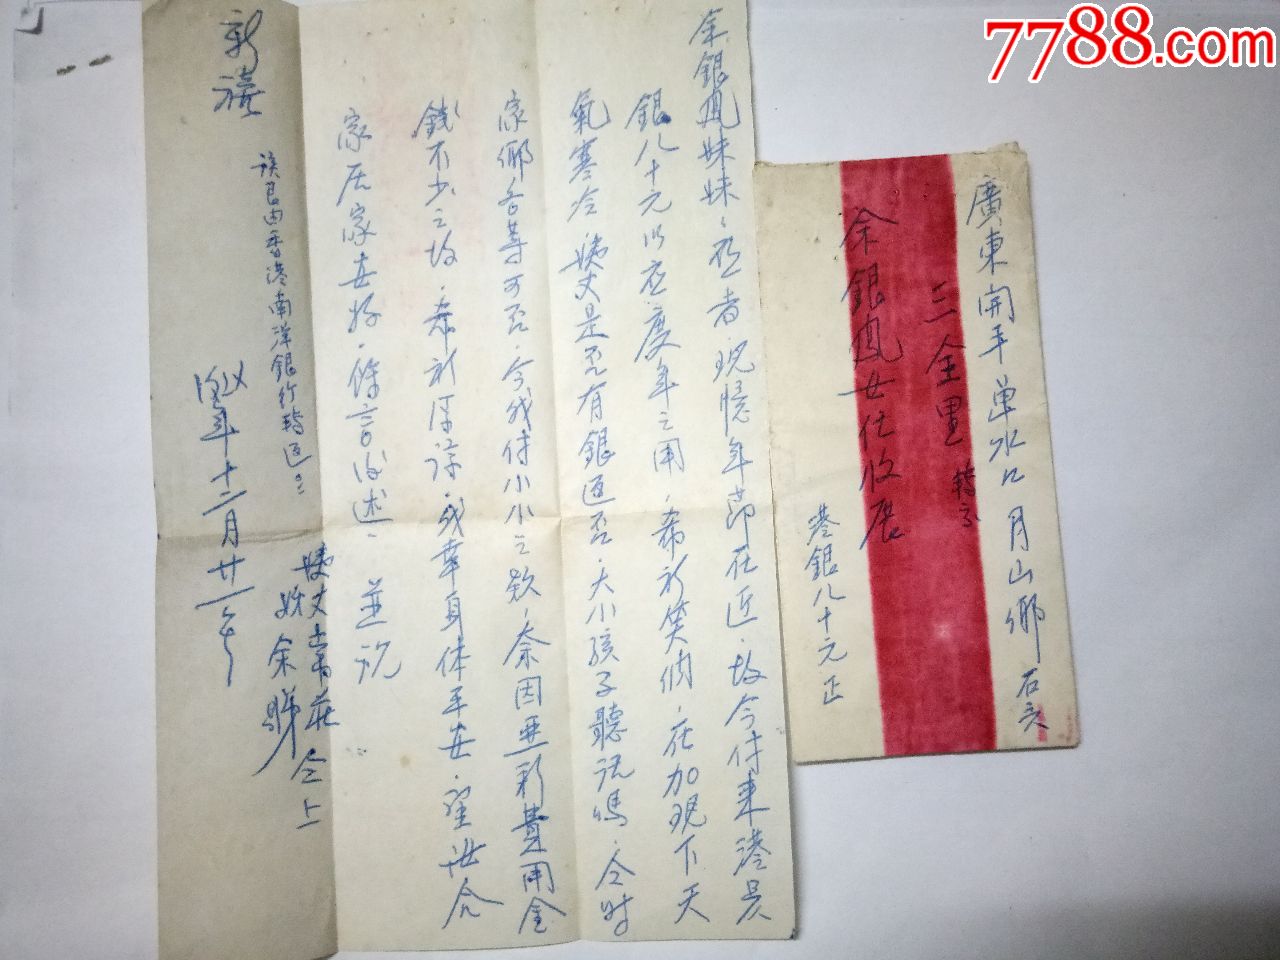 7788.com
余銀鳳妹妹、啓者、現憶年節在近、故今付來港艮
銀八十元以应度年之用、希祈笑納、在加現下天
氣寒冷、姨丈是否有銀返否、大小孩子聽話嗎、今时
家鄉各等可否、今我付小小之款、奈因亜彩費用金
錢不少之故、希祈原諒、我幸身体平安、望世合
家居家安好、餘言后述、並祝
新禧
該艮由香港南洋銀行轉返
年十二月廿一
姨丈 仝上
姊余
廣東開平单水口月山鄉石头
三全里 轉交
余銀鳳女仕收展
港銀八十元正